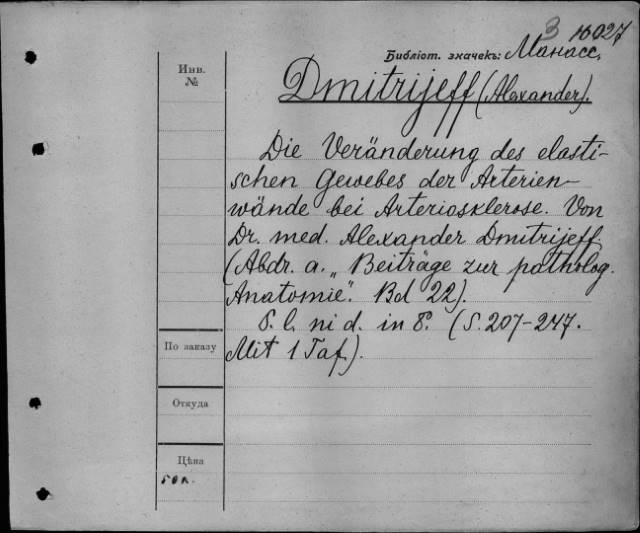 3 16027
Библіот. значекъ: Манасс.
Инв.
№
Dmitrijeff (Alexander).
Die Veränderung des elasti-
schen Gewebes der Arterien-
wände bei Arteriosklerose. Von
Dr. med. Alexander Dmitrijeff
(Abdr. a. „Beiträge zur patholog.
Anatomie". Bd 22).
S. l. ni d. in 8°. (S. 207-247.
Mit 1 Taf.).
По заказу
Откуда
Цѣна
50 к.